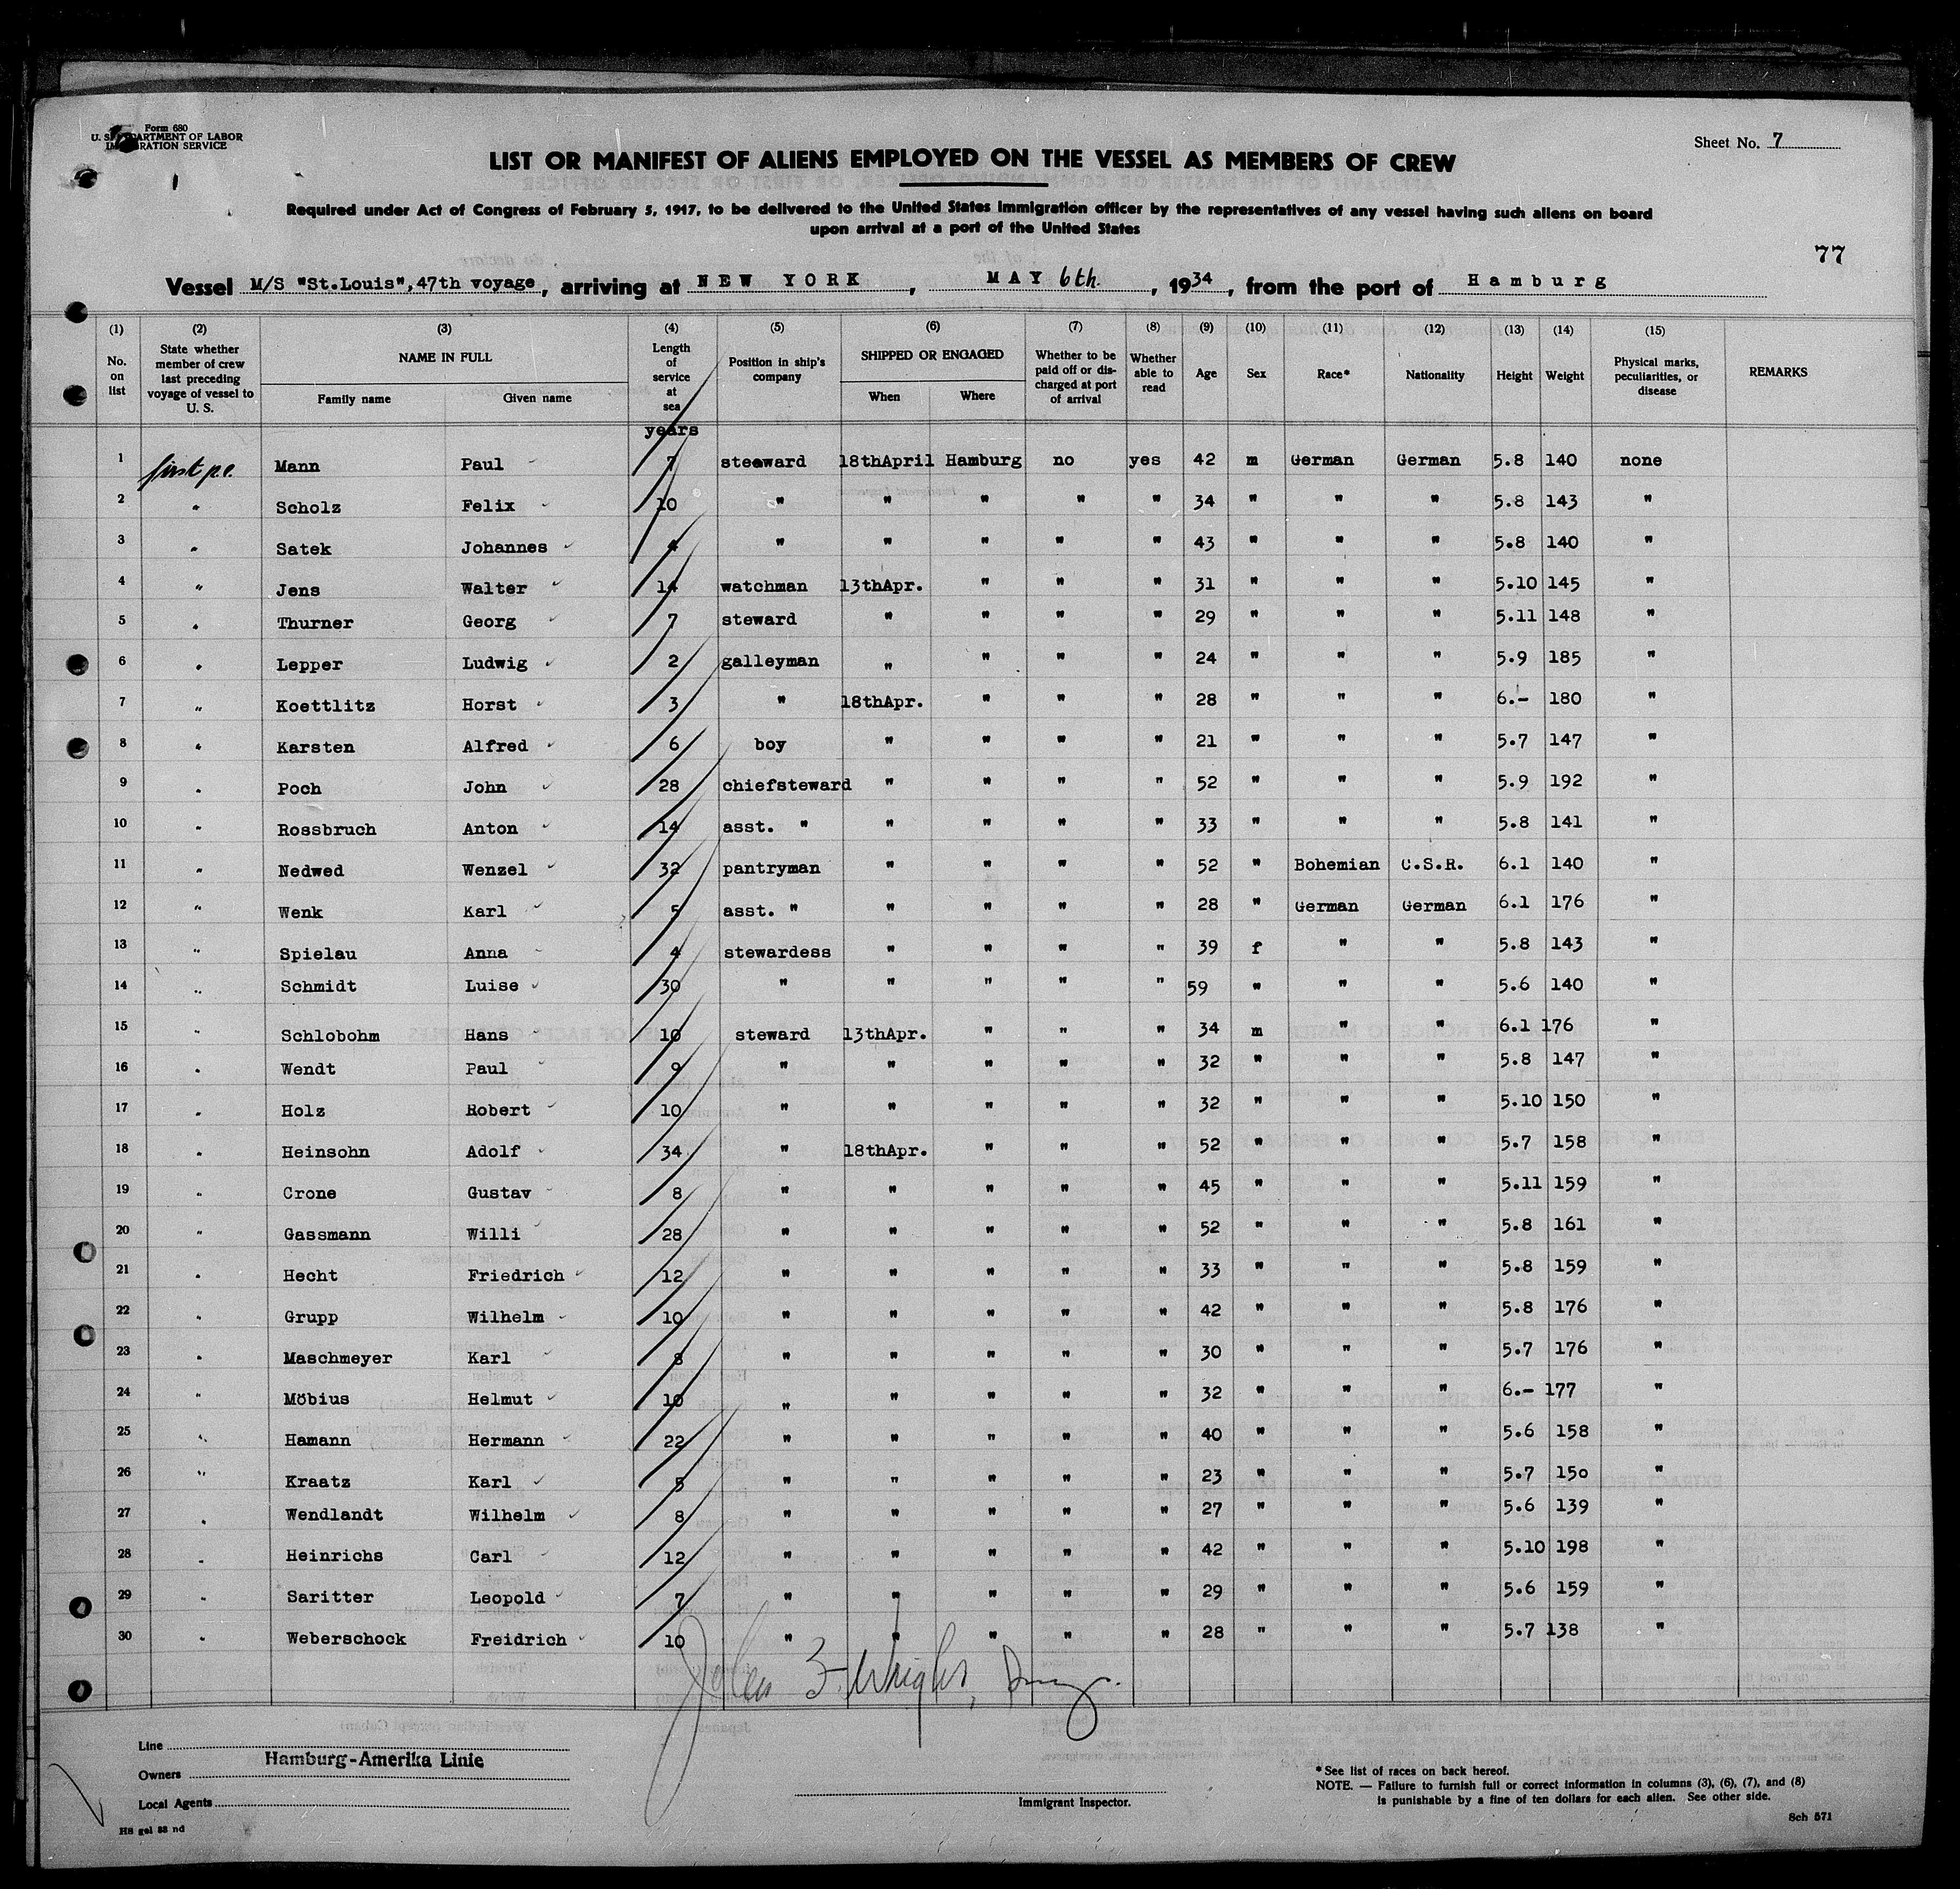 Form 680
U. S. DEPARTMENT OF LABOR
IMMIGRATION SERVICE
Sheet No. 7
LIST OR MANIFEST OF ALIENS EMPLOYED ON THE VESSEL AS MEMBERS OF CREW
Required under Act of Congress of February 5, 1917, to be delivered to the United States Immigration officer by the representatives of any vessel having such aliens on board
upon arrival at a port of the United States
77
Vessel M/S "St.Louis",47th voyage, arriving at NEW YORK, MAY 6th., 1934, from the port of Hamburg
(1) (2) (3) (4) (5) (6) (7) (8) (9) (10) (11) (12) (13) (14) (15)
No. on list | State whether member of crew last preceding voyage of vessel to U. S. | NAME IN FULL | Family name | Given name | Length of service at sea | Position in ship's company | SHIPPED OR ENGAGED | When | Where | Whether to be paid off or discharged at port of arrival | Whether able to read | Age | Sex | Race* | Nationality | Height | Weight | Physical marks, peculiarities, or disease | REMARKS
years
1 first p.c. Mann Paul 7 steaward 18thApril Hamburg no yes 42 m German German 5.8 140 none
2 " Scholz Felix 10 " " " " " 34 " " " 5.8 143 "
3 " Satek Johannes 4 " " " " " 43 " " " 5.8 140 "
4 " Jens Walter 14 watchman 13thApr. " " " 31 " " " 5.10 145 "
5 " Thurner Georg 7 steward " " " " 29 " " " 5.11 148 "
6 " Lepper Ludwig 2 galleyman " " " " 24 " " " 5.9 185 "
7 " Koettlitz Horst 3 " 18thApr. " " " 28 " " " 6.- 180 "
8 " Karsten Alfred 6 boy " " " " 21 " " " 5.7 147 "
9 " Poch John 28 chiefsteward " " " " 52 " " " 5.9 192 "
10 " Rossbruch Anton 14 asst. " " " " " 33 " " " 5.8 141 "
11 " Nedwed Wenzel 32 pantryman " " " " 52 " Bohemian C.S.R. 6.1 140 "
12 " Wenk Karl 5 asst. " " " " " 28 " German German 6.1 176 "
13 " Spielau Anna 4 stewardess " " " " 39 f " " 5.8 143 "
14 " Schmidt Luise 30 " " " " " 59 " " " 5.6 140 "
15 " Schlobohm Hans 10 steward 13thApr. " " " 34 m " " 6.1 176 "
16 " Wendt Paul 9 " " " " " 32 " " " 5.8 147 "
17 " Holz Robert 10 " " " " " 32 " " " 5.10 150 "
18 " Heinsohn Adolf 34 " 18thApr. " " " 52 " " " 5.7 158 "
19 " Crone Gustav 8 " " " " " 45 " " " 5.11 159 "
20 " Gassmann Willi 28 " " " " " 52 " " " 5.8 161 "
21 " Hecht Friedrich 12 " " " " " 33 " " " 5.8 159 "
22 " Grupp Wilhelm 10 " " " " " 42 " " " 5.8 176 "
23 " Maschmeyer Karl 8 " " " " " 30 " " " 5.7 176 "
24 " Möbius Helmut 10 " " " " " 32 " " " 6.- 177 "
25 " Hamann Hermann 22 " " " " " 40 " " " 5.6 158 "
26 " Kraatz Karl 5 " " " " " 23 " " " 5.7 150 "
27 " Wendlandt Wilhelm 8 " " " " " 27 " " " 5.6 139 "
28 " Heinrichs Carl 12 " " " " " 42 " " " 5.10 198 "
29 " Saritter Leopold 7 " " " " " 29 " " " 5.6 159 "
30 " Weberschock Freidrich 10 " " " " " 28 " " " 5.7 138 "
Line
Hamburg-Amerika Linie
Owners
Local Agents
HS gel 88 nd
Immigrant Inspector.
*See list of races on back hereof.
NOTE. — Failure to furnish full or correct information in columns (3), (6), (7), and (8)
is punishable by a fine of ten dollars for each alien. See other side.
Sch 571